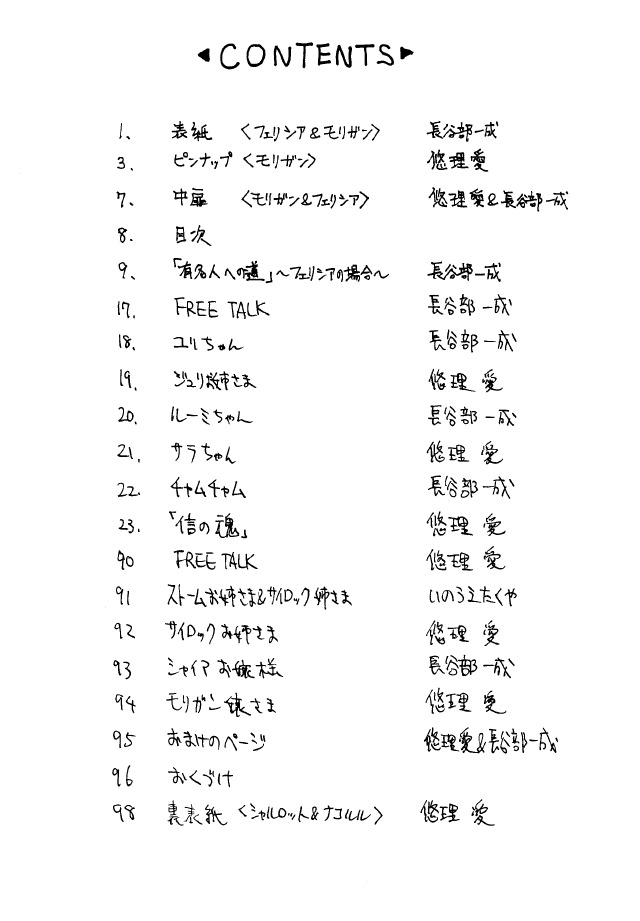 ◂CONTENTS▸
1、 表紙 〈フェリシア&モリガン〉 長谷部一成
3. ピンナップ〈モリガン〉 悠理愛
7、 中扉 〈モリガン&フェリシア〉 悠理愛&長谷部一成
8. 目次
9、 「有名人への道」〜フェリシアの場合〜 長谷部一成
17. FREE TALK 長谷部一成
18. ユリちゃん 長谷部一成
19. ジュリお姉さま 悠理 愛
20. ルーミちゃん 長谷部一成
21. サラちゃん 悠理 愛
22. チャムチャム 長谷部一成
23. 「信の魂」 悠理 愛
90 FREE TALK 悠理 愛
91 ストームお姉さま&サイロック姉さま いのうえたくや
92 サイロックお姉さま 悠理 愛
93 シャイアお嬢様 長谷部一成
94 モリガン嬢さま 悠理 愛
95 おまけのページ 悠理愛&長谷部一成
96 おくづけ
98 裏表紙 〈シャルロット&ナコルル〉 悠理 愛